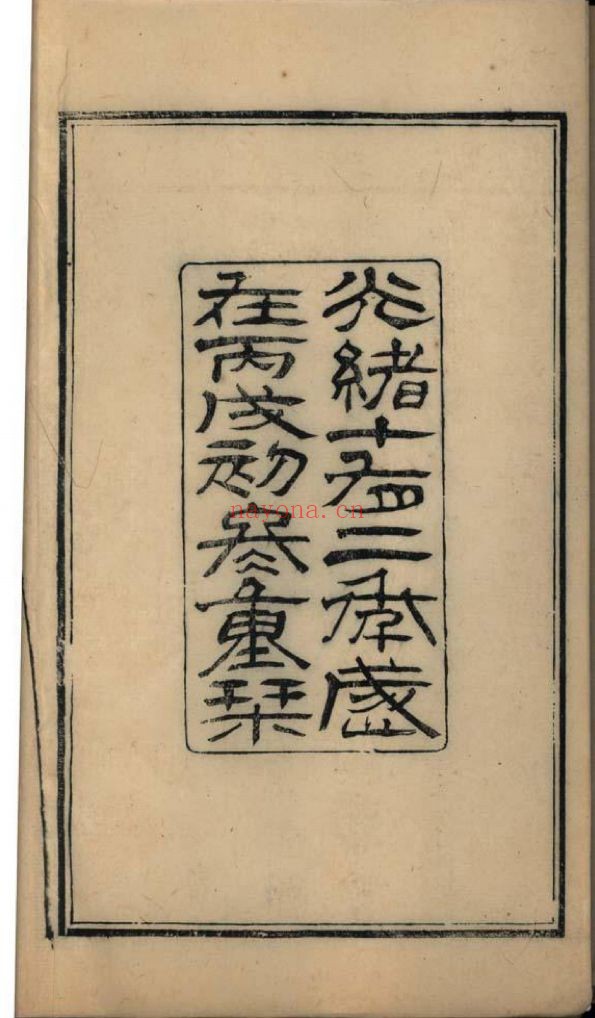 光緒十有二年歲
在丙戌初冬重栞
nayona.cn